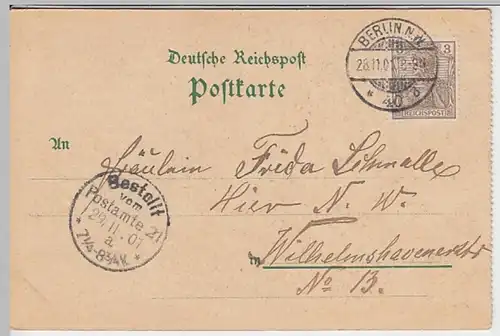 Deutsche Reichspost
Postkarte
BERLIN N.W.
28.11.01
* 40
3
REICHSPOST
An
Fräulein Frida Schmalle
Hier N. W.
in Wilhelmshavenerstr
No 13.
Bestellt
vom
Postamte 21
29.11.01
a.
* 7 1/4-8 3/4 V. *